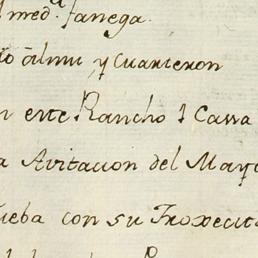 med.ª fanega.
almu, y Cuarteron
en este Rancho 1 Cassa
a Avitacion del Mary
ueba con su Troxecita